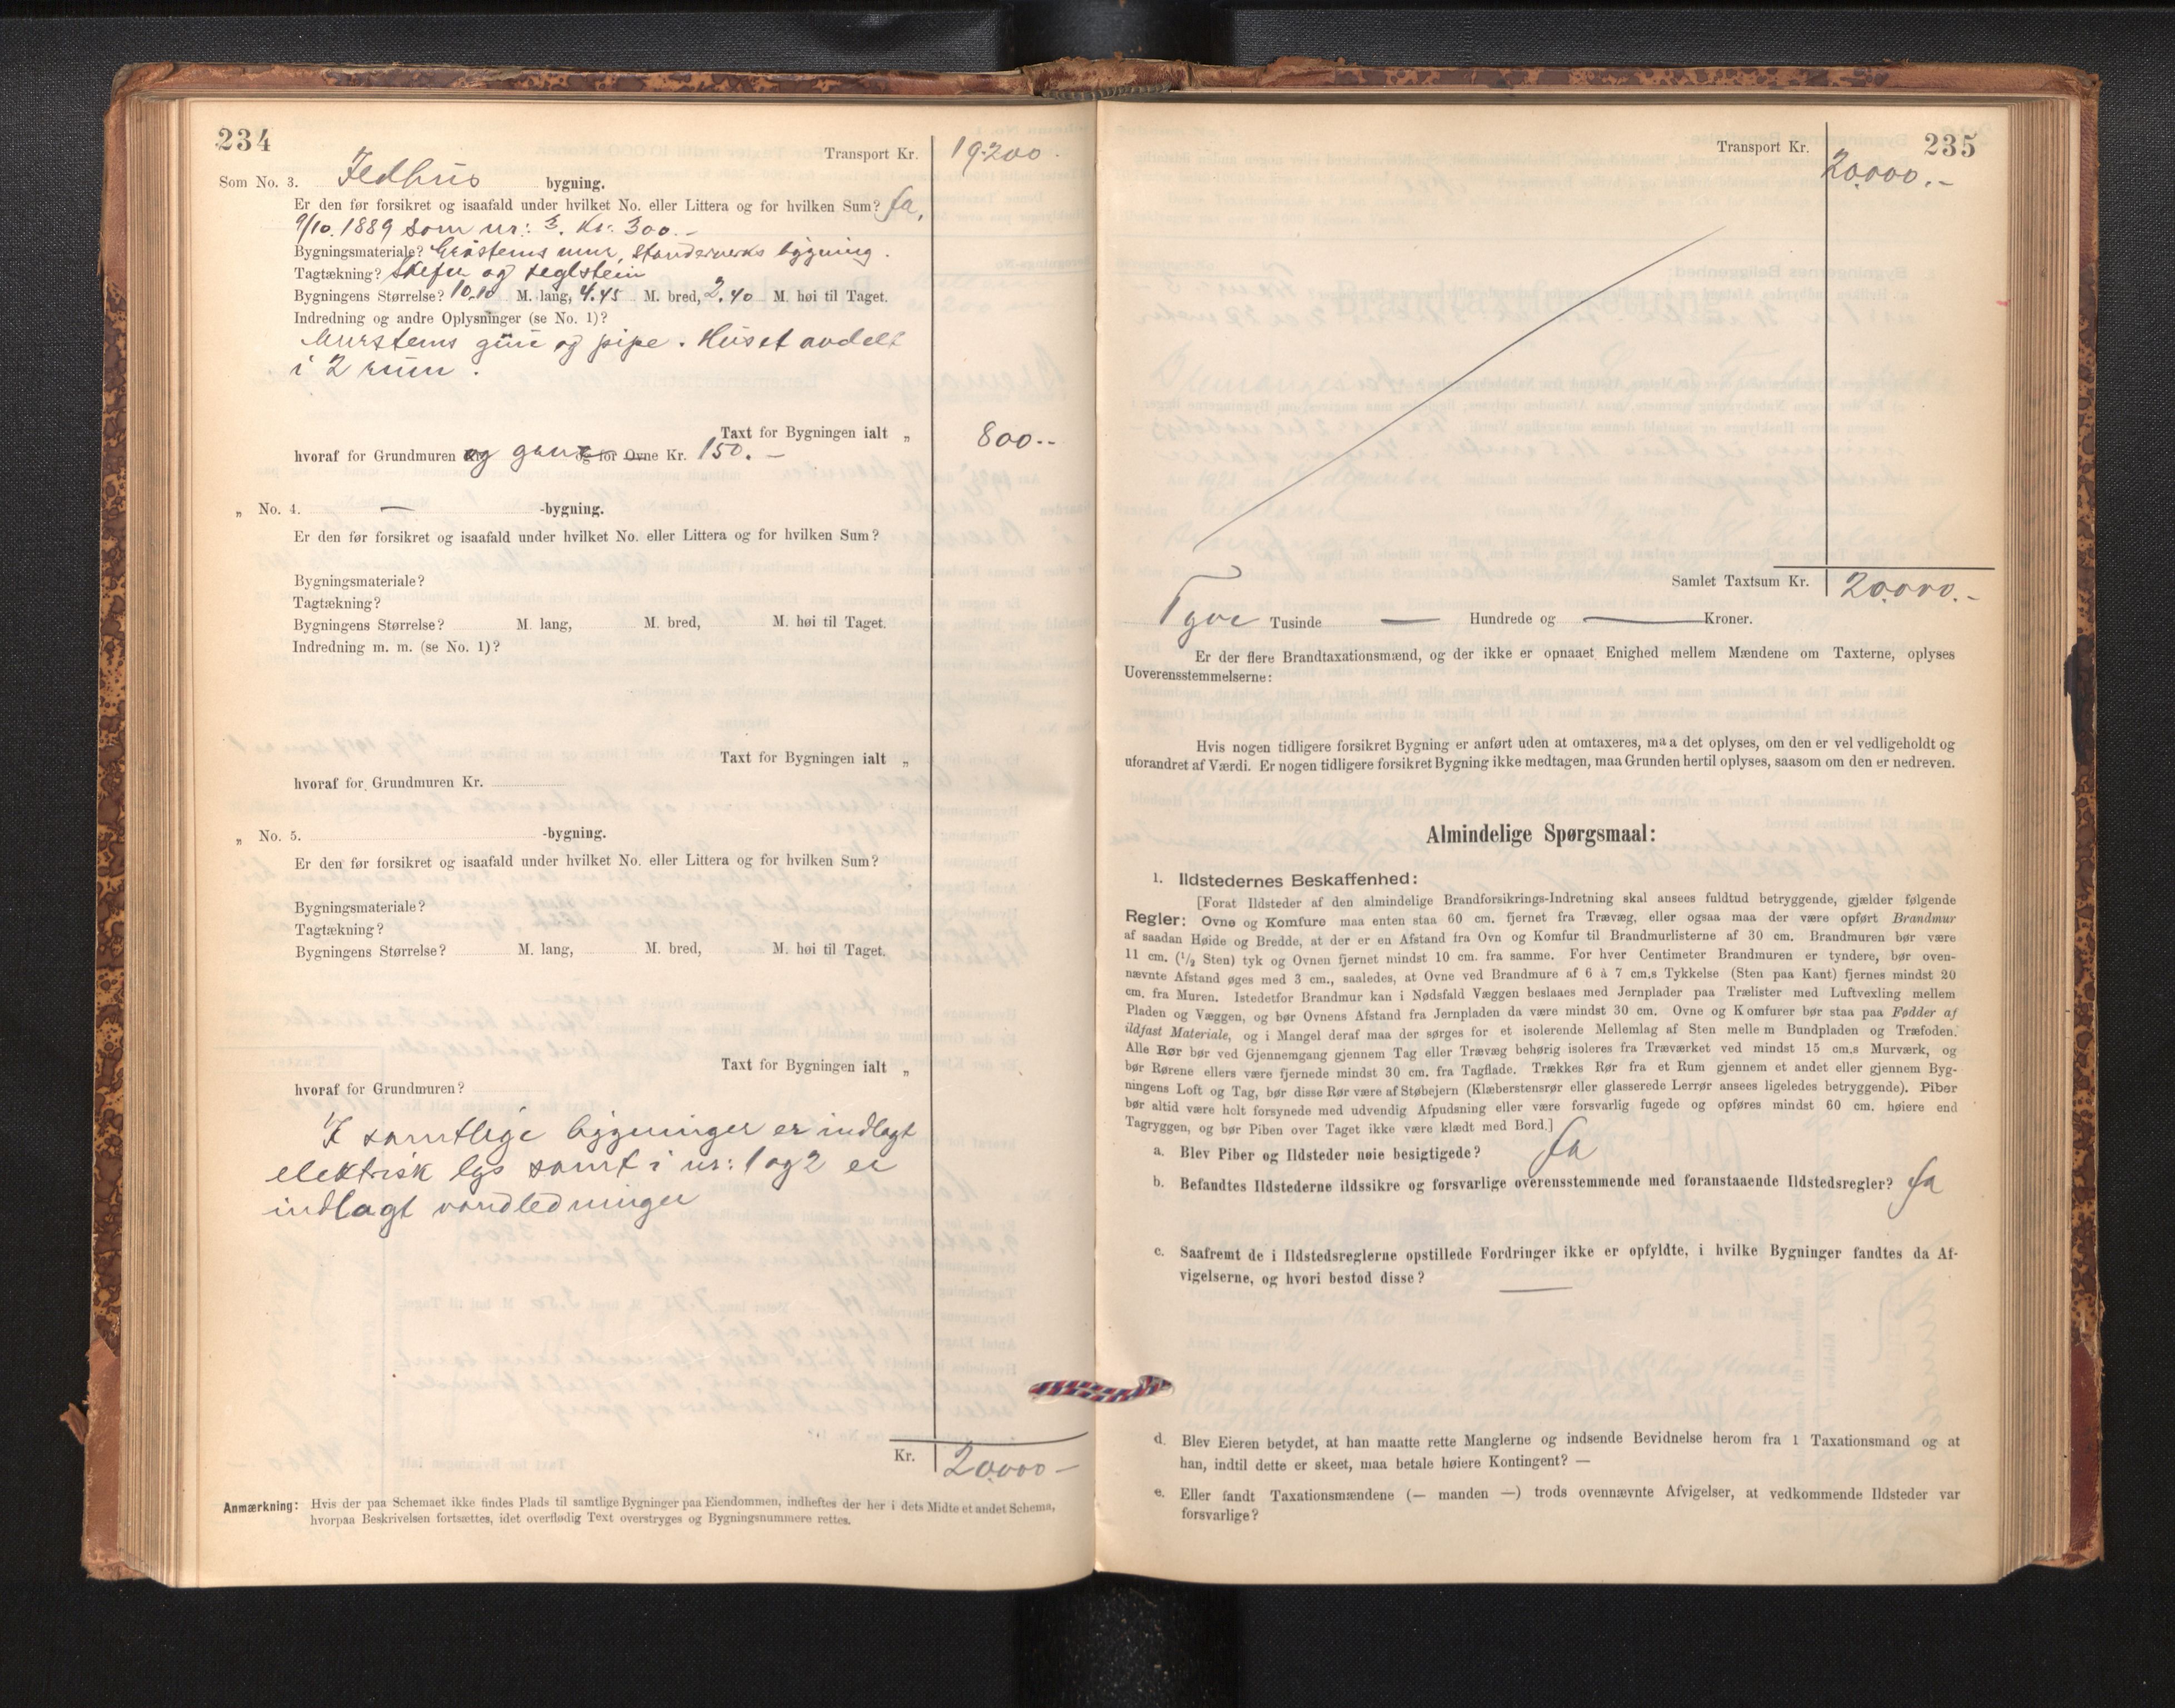 234
Transport Kr. 19.200.
Som No. 3. Ildhus bygning.
Er den før forsikret og isaafald under hvilket No. eller Littera og for hvilken Sum? Ja,
9/10. 1889 som nr: 3. Kr. 300.-
Bygningsmateriale? Gråstens mur, standerverks bygning.
Tagtækning? Skifer og teglstein
Bygningens Størrelse? 10.10 M. lang, 4.45 M. bred, 2.40 M. høi til Taget.
Indredning og andre Oplysninger (se No. 1)?
Murstens grue og pipe. Huset avdelt
i 2 rum.
Taxt for Bygningen ialt „ 800.-
hvoraf for Grundmuren og grue og for Ovne Kr. 150.-
„ No. 4. — -bygning.
Er den før forsikret og isaafald under hvilket No. eller Littera og for hvilken Sum?
Bygningsmateriale?
Tagtækning?
Bygningens Størrelse? M. lang, M. bred, M. høi til Taget.
Indredning m. m. (se No. 1)?
Taxt for Bygningen ialt „
hvoraf for Grundmuren Kr.
„ No. 5. -bygning.
Er den før forsikret og isaafald under hvilket No. eller Littera og for hvilken Sum?
Bygningsmateriale?
Tagtækning?
Bygningens Størrelse? M. lang, M. bred, M. høi til Taget.
Taxt for Bygningen ialt „
hvoraf for Grundmuren?
I samtlige bygninger er indlagt
elektrisk lys samt i nr: 1 og 2 er
indlagt vandledninger
Kr. 20.000-
Anmærkning: Hvis der paa Schemaet ikke findes Plads til samtlige Bygninger paa Eiendommen, indheftes der her i dets Midte et andet Schema,
hvorpaa Beskrivelsen fortsættes, idet overflødig Text overstryges og Bygningsnummere rettes.
235
Transport Kr. 20.000.-
Samlet Taxtsum Kr. 20.000.-
Tyve Tusinde — Hundrede og — Kroner.
Er der flere Brandtaxationsmænd, og der ikke er opnaaet Enighed mellem Mændene om Taxterne, oplyses
Uoverensstemmelserne:
Hvis nogen tidligere forsikret Bygning er anført uden at omtaxeres, maa det oplyses, om den er vel vedligeholdt og
uforandret af Værdi. Er nogen tidligere forsikret Bygning ikke medtagen, maa Grunden hertil oplyses, saasom om den er nedreven.
Almindelige Spørgsmaal:
1. Ildstedernes Beskaffenhed:
[Forat Ildsteder af den almindelige Brandforsikrings-Indretning skal ansees fuldtud betryggende, gjælder følgende
Regler: Ovne og Komfure maa enten staa 60 cm. fjernet fra Trævæg, eller ogsaa maa der være opført Brandmur
af saadan Høide og Bredde, at der er en Afstand fra Ovn og Komfur til Brandmurlisterne af 30 cm. Brandmuren bør være
11 cm. (1/2 Sten) tyk og Ovnen fjernet mindst 10 cm. fra samme. For hver Centimeter Brandmuren er tyndere, bør oven-
nævnte Afstand øges med 3 cm., saaledes, at Ovne ved Brandmure af 6 à 7 cm.s Tykkelse (Sten paa Kant) fjernes mindst 20
cm. fra Muren. Istedetfor Brandmur kan i Nødsfald Væggen beslaaes med Jernplader paa Trælister med Luftvexling mellem
Pladen og Væggen, og bør Ovnens Afstand fra Jernpladen da være mindst 30 cm. Ovne og Komfurer bør staa paa Fødder af
ildfast Materiale, og i Mangel deraf maa der sørges for et isolerende Mellemlag af Sten mellem Bundpladen og Træfoden.
Alle Rør bør ved Gjennemgang gjennem Tag eller Trævæg behørig isoleres fra Træværket ved mindst 15 cm.s Murværk, og
bør Rørene ellers være fjernede mindst 30 cm. fra Tagflade. Trækkes Rør fra et Rum gjennem et andet eller gjennem Byg-
ningens Loft og Tag, bør disse Rør være af Støbejern (Klæberstensrør eller glasserede Lerrør ansees ligeledes betryggende). Piber
bør altid være holt forsynede med udvendig Afpudsning eller være forsvarlig fugede og opføres mindst 60 cm. høiere end
Tagryggen, og bør Piben over Taget ikke være klædt med Bord.]
a. Blev Piber og Ildsteder nøie besigtigede? Ja
b. Befandtes Ildstederne ildssikre og forsvarlige overensstemmende med foranstaaende Ildstedsregler? Ja
c. Saafremt de i Ildstedsreglerne opstillede Fordringer ikke er opfyldte, i hvilke Bygninger fandtes da Af-
vigelserne, og hvori bestod disse? —
d. Blev Eieren betydet, at han maatte rette Manglerne og indsende Bevidnelse herom fra 1 Taxationsmand og at
han, indtil dette er skeet, maa betale høiere Kontingent? —
e. Eller fandt Taxationsmændene (— manden —) trods ovennævnte Afvigelser, at vedkommende Ildsteder var
forsvarlige?